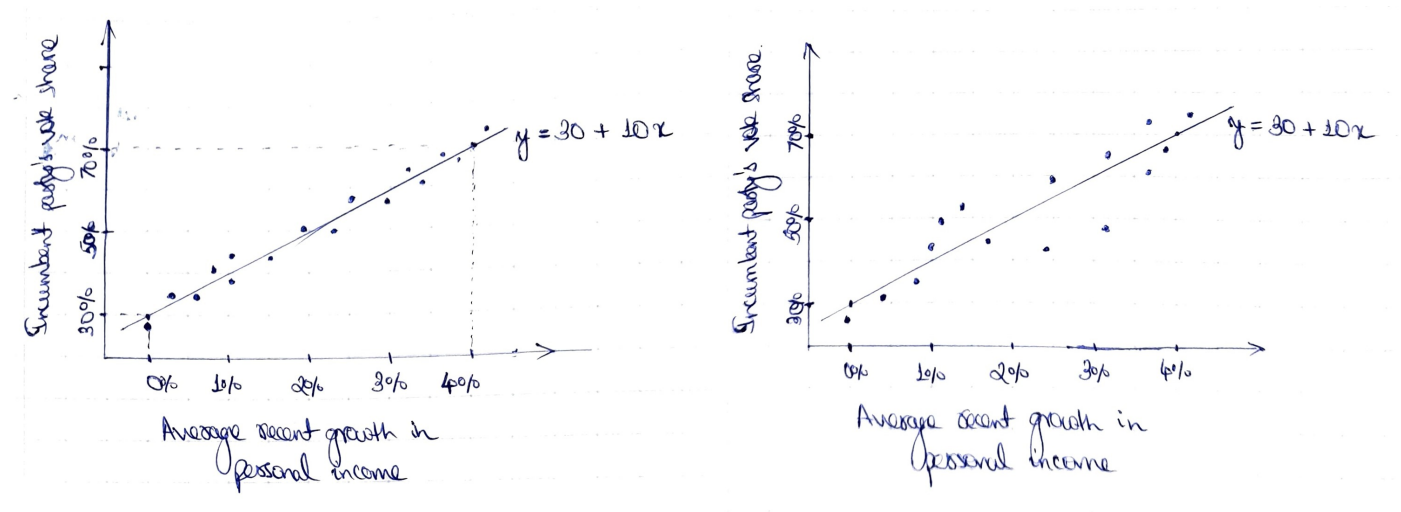 Incumbent party's vote share
70%
50%
30%
0% 1% 2% 3% 4%
y = 30 + 10x
Average recent growth in
personal income
Incumbent party's vote share.
70%
50%
30%
0% 1% 2% 3% 4%
y = 30 + 10x
Average recent growth in
personal income